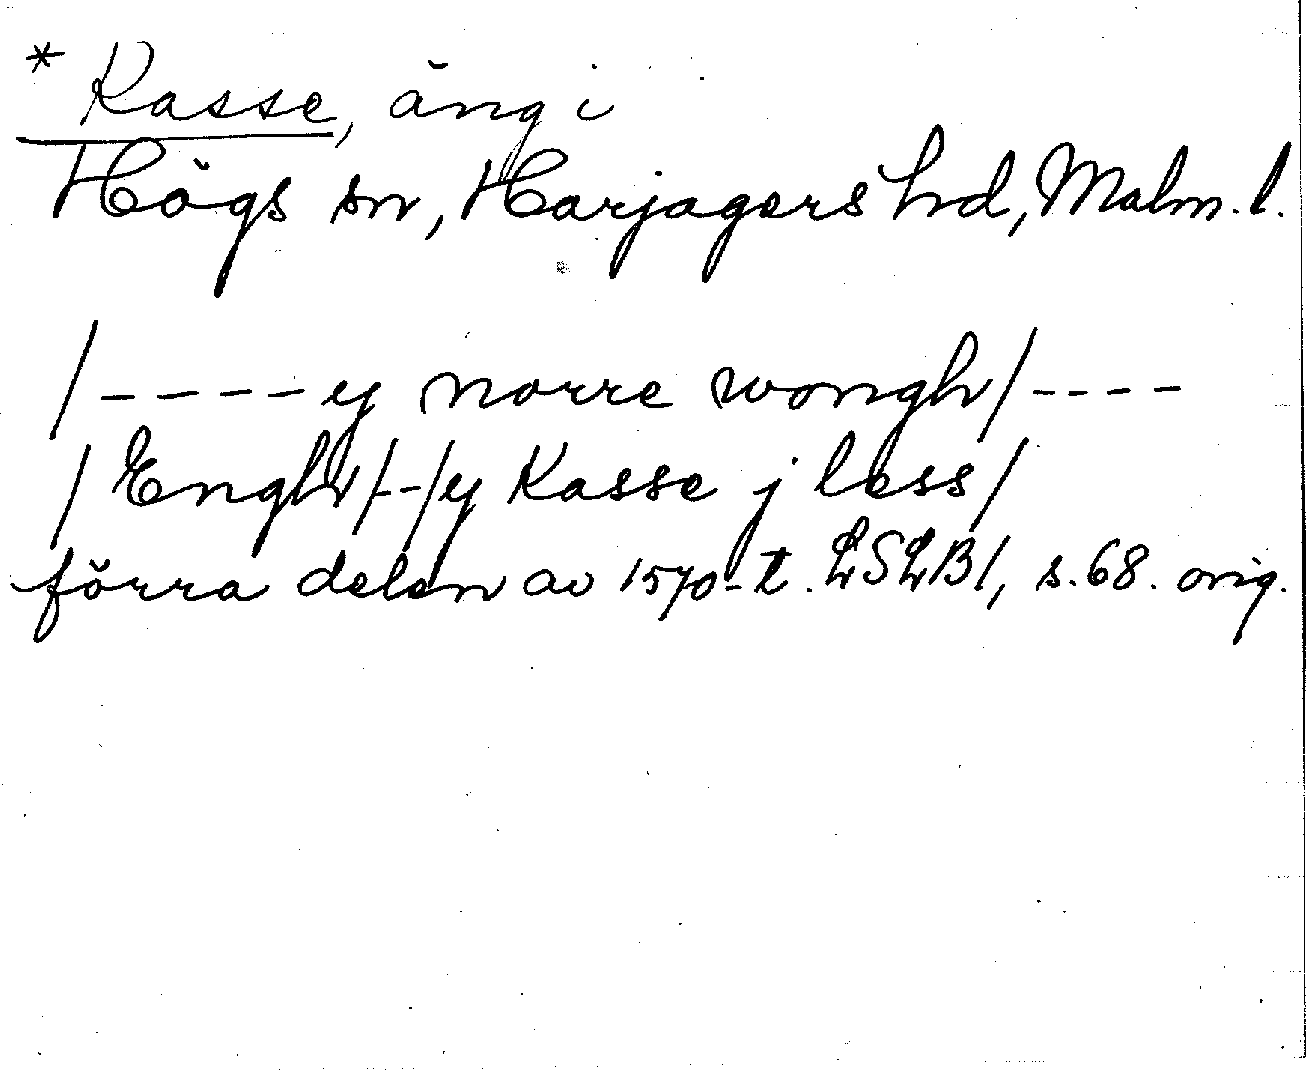 * Kasse, äng i
Högs sn, Harjagers hd, Malm. l.
/-----y norre wongh/----
/Engh/--/y Kasse j less/
förra delen av 1570-t. LSLB1, s. 68. orig.